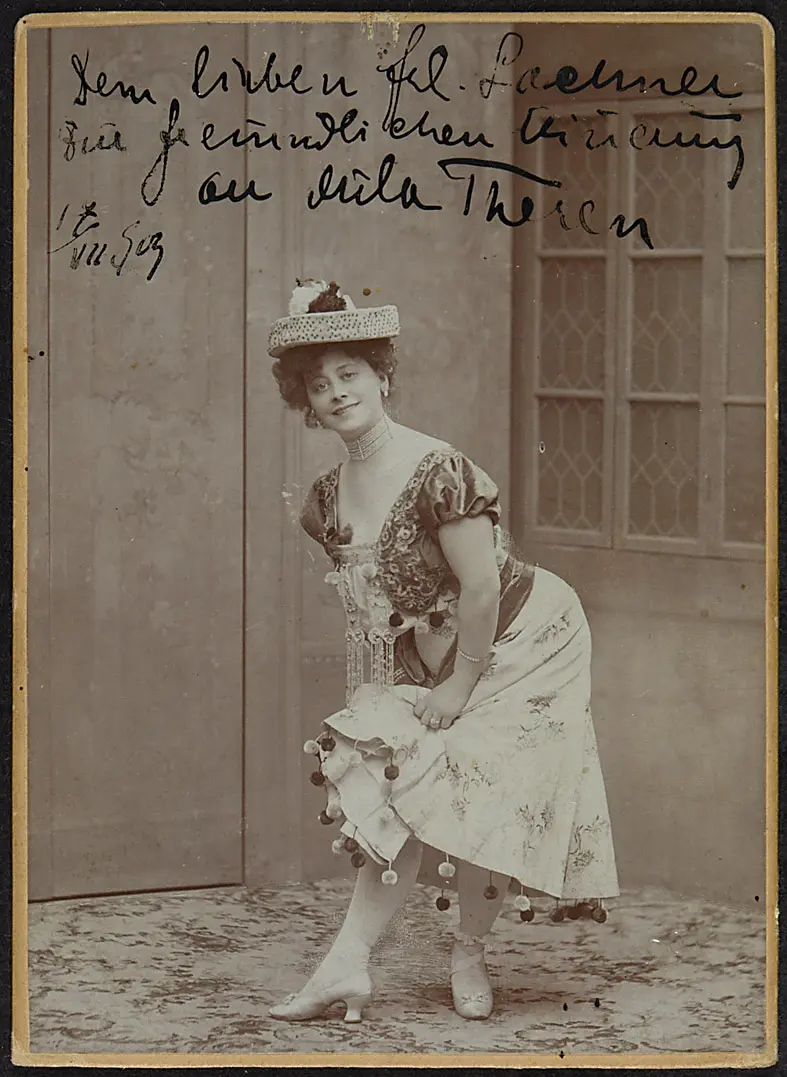 Dem lieben Frl. Lachner
zur freundlichen Erinnerung
an Mila Theren
17
VII 903